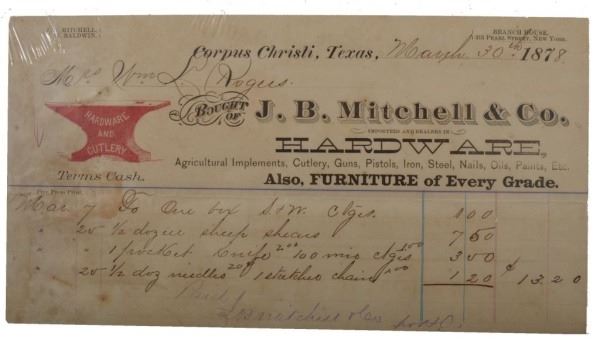 MITCHELL.
BALDWIN.
BRANCH HOUSE,
PEARL STREET, NEW YORK.
Corpus Christi, Texas, March 30th 1878.
Mrs Wm L Rogers.
BOUGHT OF J. B. Mitchell & Co.
IMPORTERS AND DEALERS IN
HARDWARE,
HARDWARE AND CUTLERY
Agricultural Implements, Cutlery, Guns, Pistols, Iron, Steel, Nails, Oils, Paints, Etc.
Terms Cash.
Also, FURNITURE of Every Grade.
Free Press Print.
Mar 7 To One box S&W. Ctgs. 1 00
" 20 1/2 dozen sheep shears 7 50
" " 1 pocket knife 2.00 100 ctgs 1.00 3 00
" 20 1/2 doz needles 20 1 chain 1.00 1 20 $ 13.20
Paid
J B Mitchell & Co